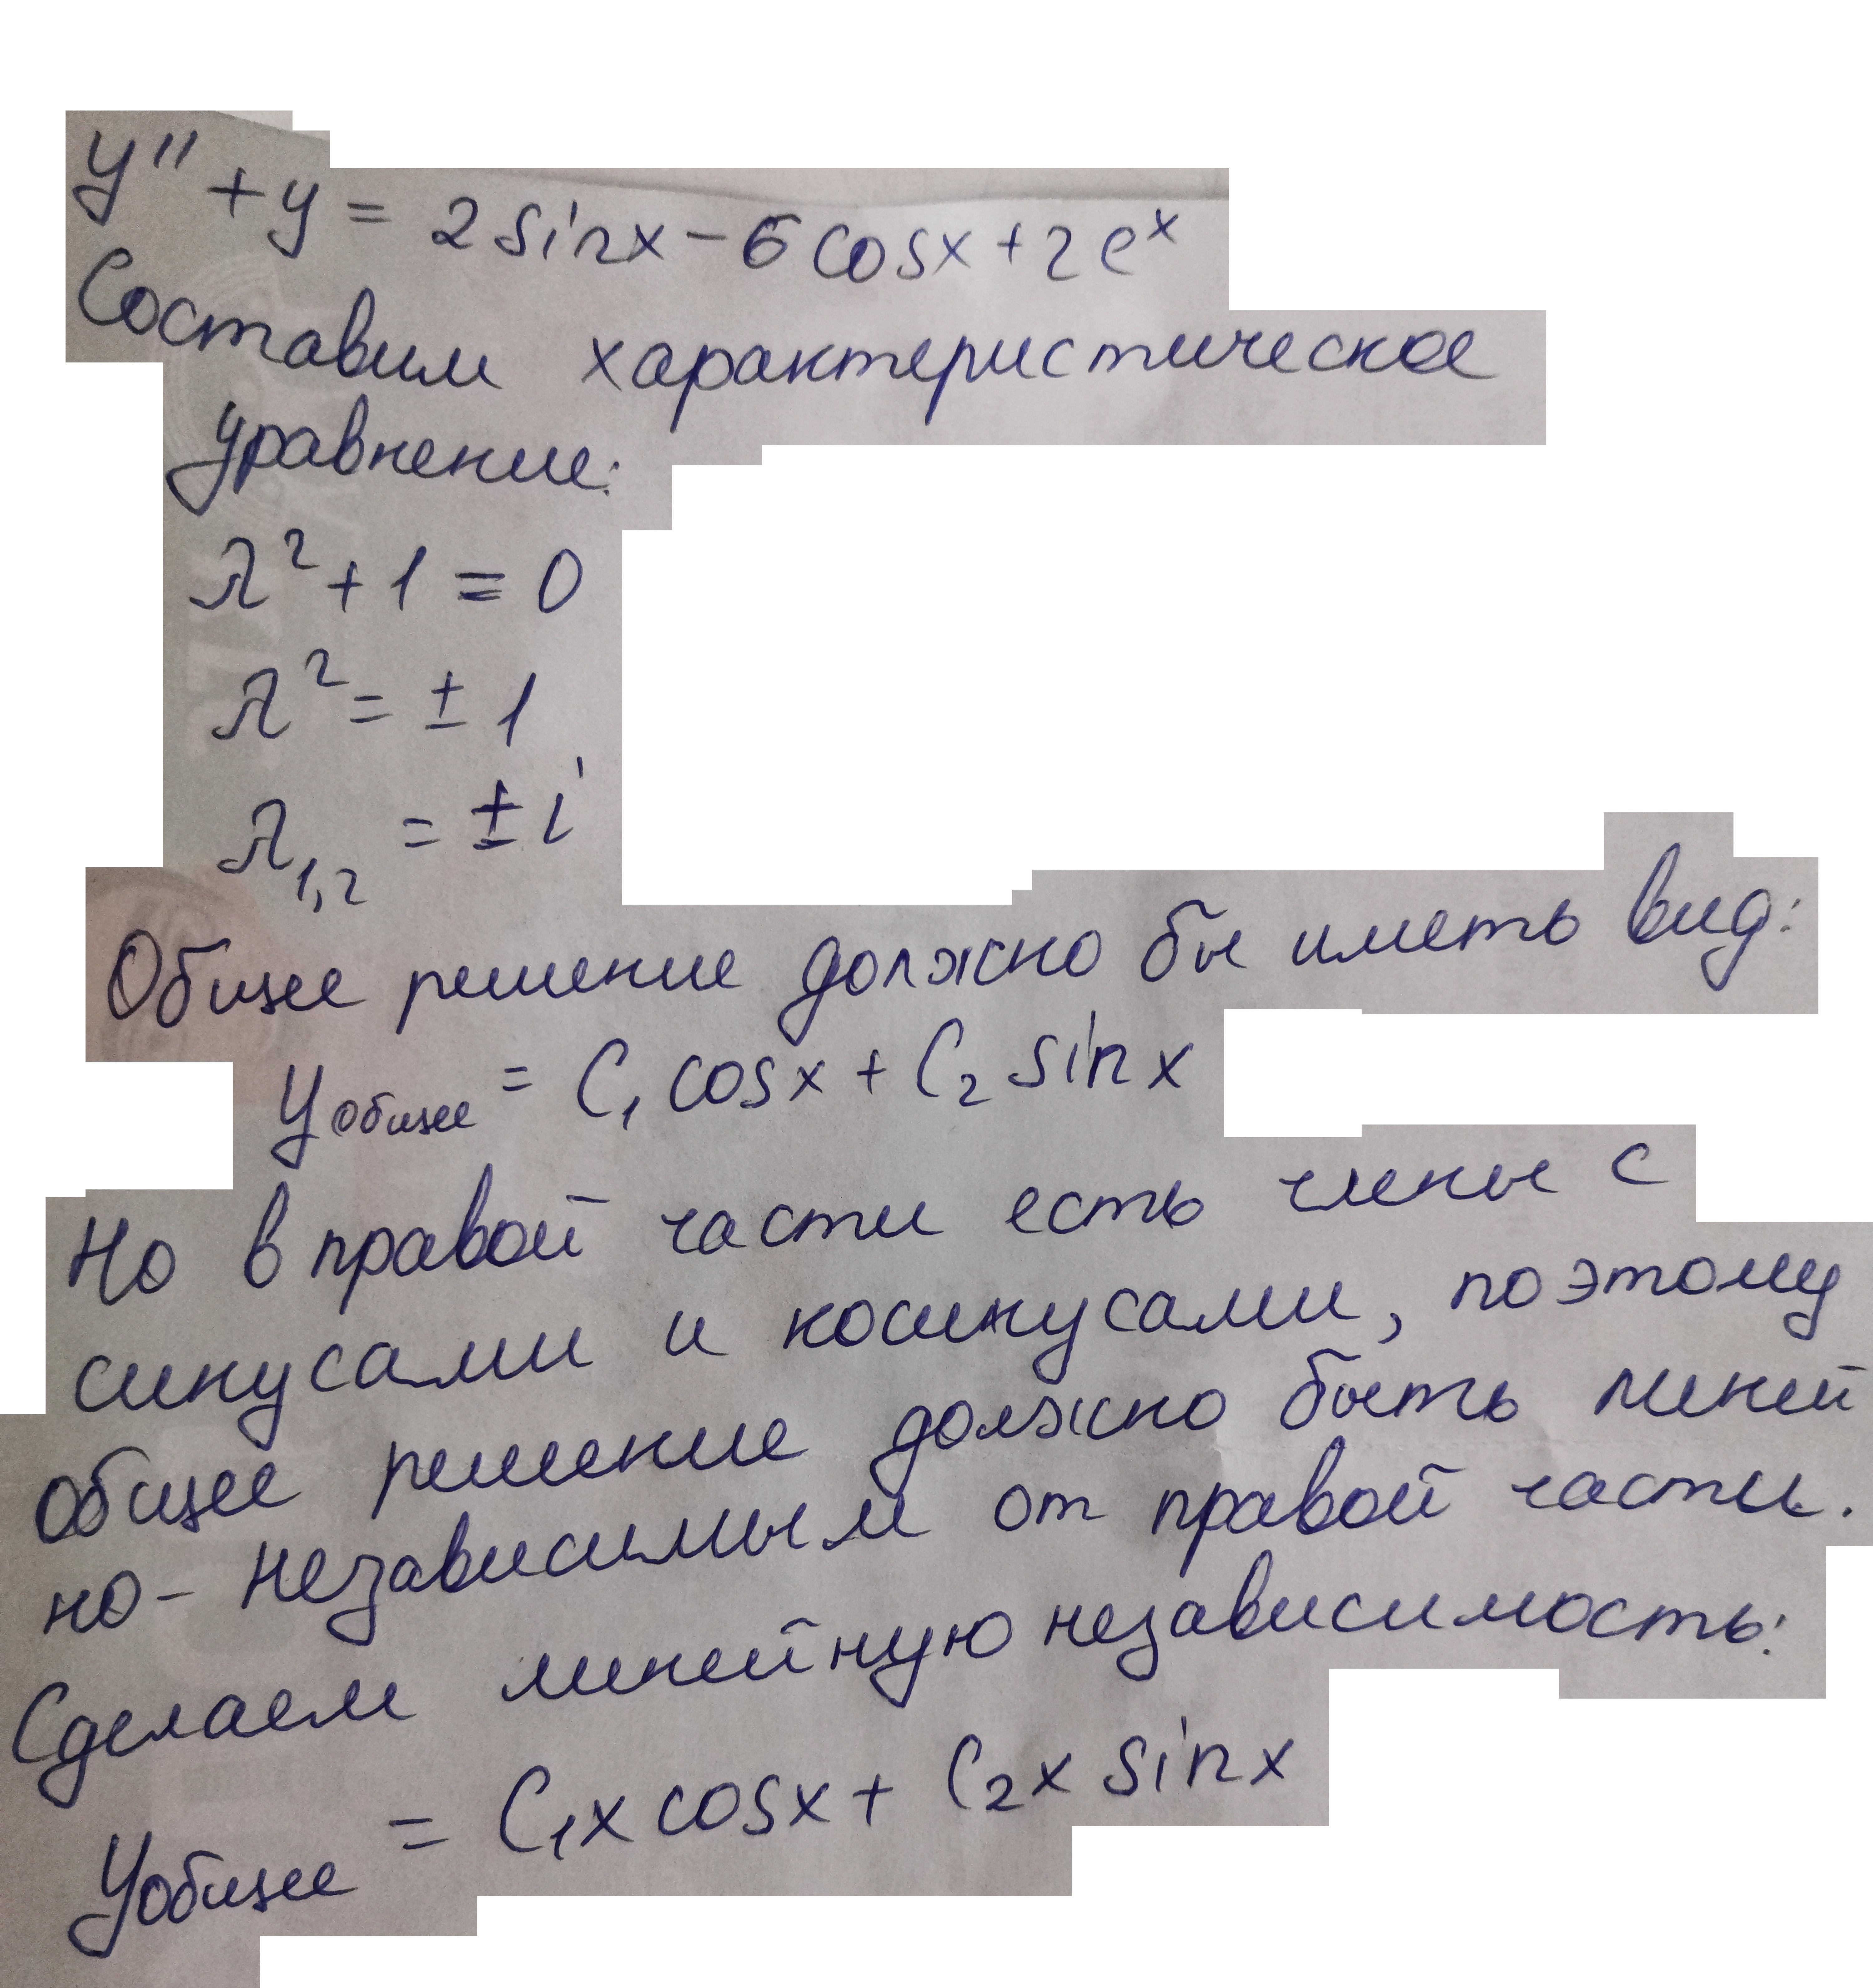 y'' + y = 2 sin x − 6 cos x + 2 e^x
Составим характеристическое
уравнение:
λ² + 1 = 0
λ² = ± 1
λ₁,₂ = ± i
Общее решение должно бы иметь вид:
y общее = C₁ cos x + C₂ sin x
Но в правой части есть члены с
синусами и косинусами, поэтому
общее решение должно быть линей
но-независимым от правой части.
Сделаем линейную независимость:
y общее = C₁x cos x + C₂x sin x